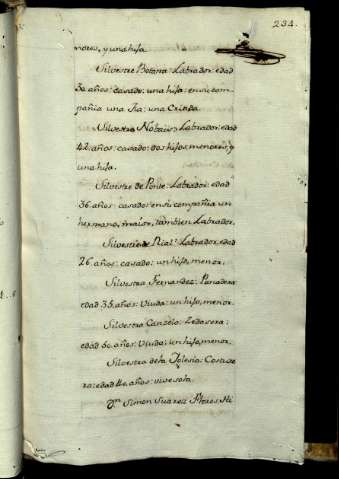 234.
nores, y una hija.
Silvestre Botana: Labrador: edad
30 años: casado: una hija: en su com
pañia una tia: una Criada.
Silvestre Labrador: edad
42 años: casado: dos hijos menores, y
una hija.
Silvestre de Ponte: Labrador: edad
36 años: casado: en su compañia un
hermano, maior, tambien Labrador.
Silvestre de Rial: Labrador, edad
26 años: casado: un hijo, menor.
Silvestra Fernandez: Panadera
edad 35 años: Viuda: un hijo, menor.
Silvestra Canzelo: Zedazera:
edad 60 años: Viuda: un hijo, menor.
Silvestra dela Yglesia: Costure
ra: edad años: vive sola.
Dn. Simon Suarez